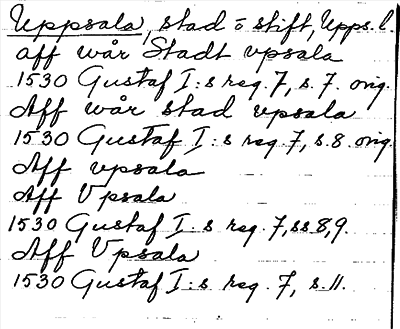 Uppsala, stad o stift, Upps. l.
aff wår Stadt vpsala
1530 Gustaf I:s reg. 7, s. 7. orig.
Aff wår stad vpsala
1530 Gustaf I:s reg. 7, s. 8 orig.
Aff vpsala
Aff Vpsala
1530 Gustaf I:s reg. 7, ss. 8, 9.
Aff Vpsala
1530 Gustaf I:s reg. 7, s. 11.